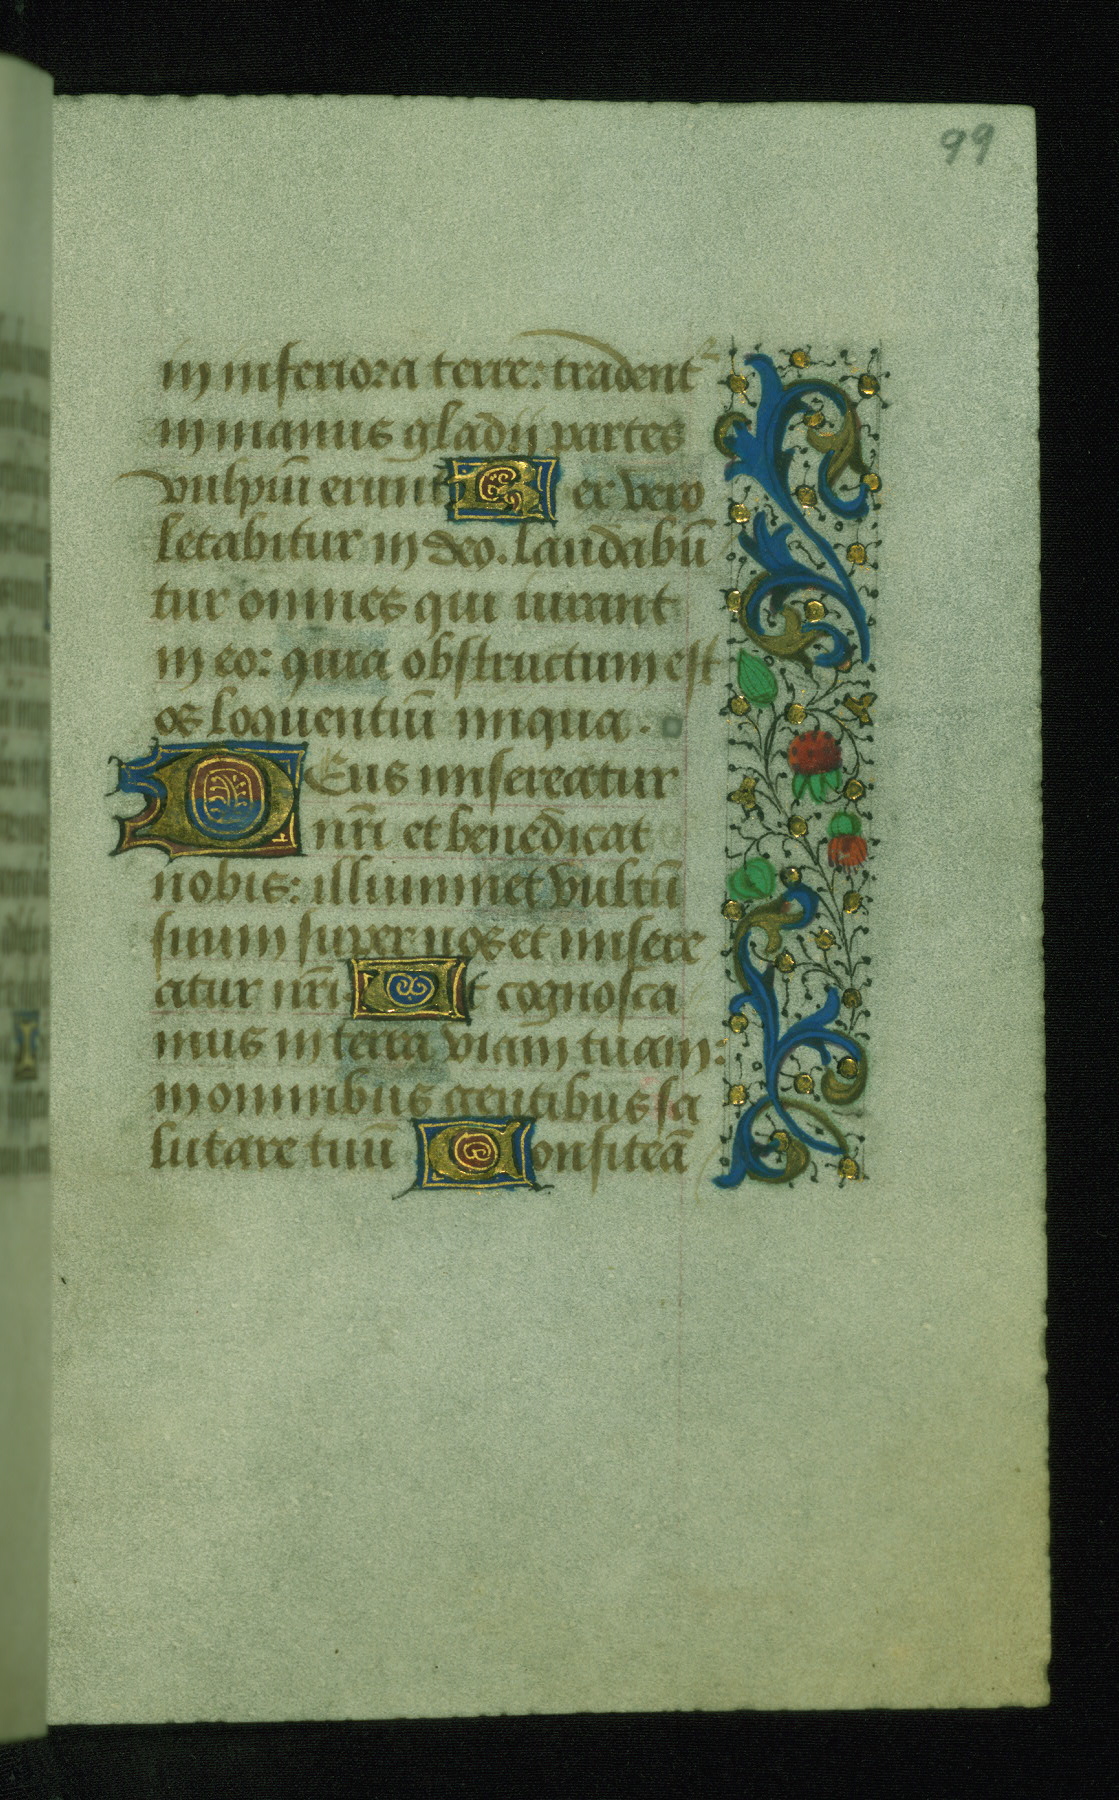 99
in inferiora terre: tradentᷣ
in manus gladii partes
vulpiū erunt Rex vero
letabitur in deo. laudabū
tur omnes qui iurant
in eo: quia obstructum est
os loquentiū iniqua.
DEus misereatur
nr̄i et benedicat
nobis: illuminet vultū
suum super nos et misere
atur nr̄i Et cognosca
mus in terra viam tuam:
in omnibus gentibus sa
lutare tuū Confiteā